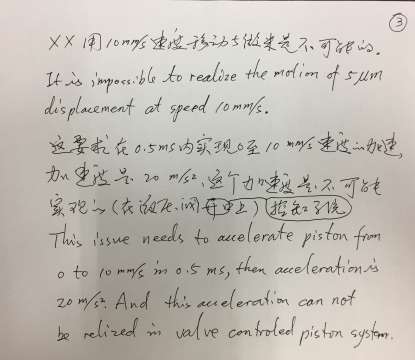 ③
XX 用 10mm/s 速度移动5微米是不可能的.
It is impossible to realize the motion of 5 μm
displacement at speed 10mm/s.
这要求在 0.5ms内实现0至 10 mm/s 速度的加速,
加速度是 20 m/s², 这个加速度是不可能
实现的 (在液压阀 上) 控制系统
This issue needs to accelerate piston from
0 to 10 mm/s in 0.5 ms, then acceleration is
20 m/s². And this acceleration can not
be relized in valve controled piston system.